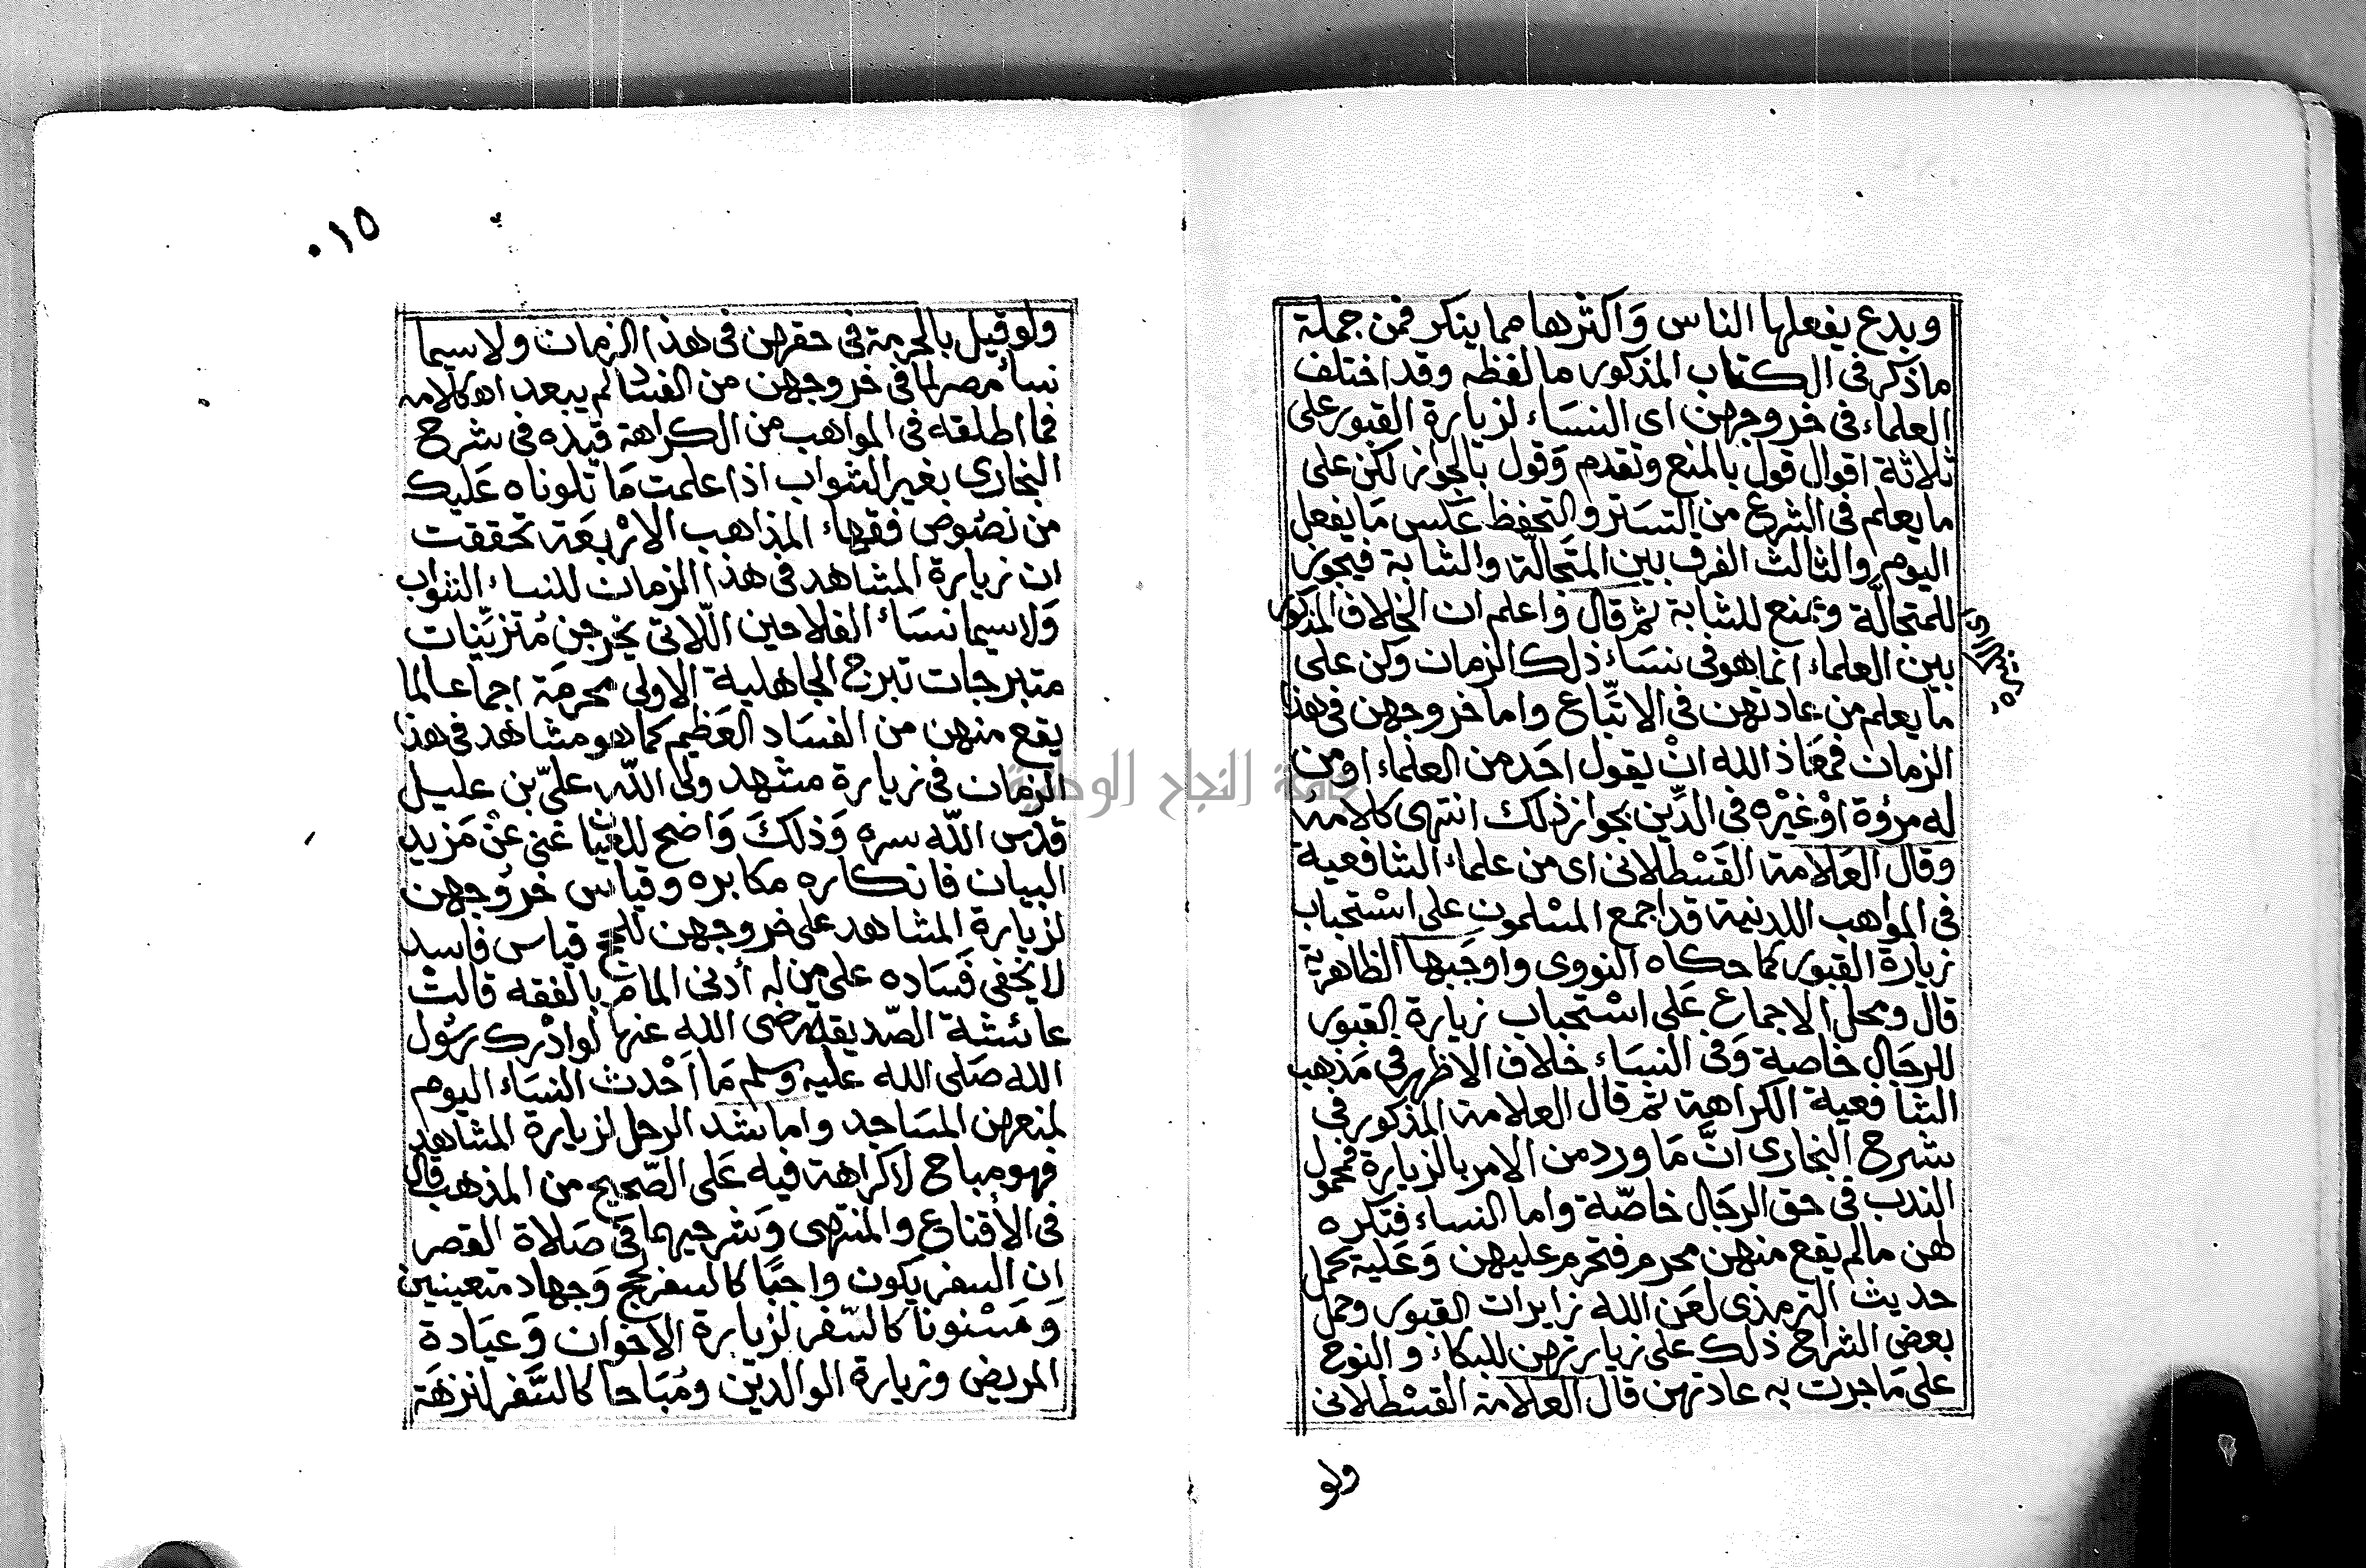 وبدع يفعلها الناس وَاكثرها مما ينكر فمن جملة
ما ذكر فى الكتاب المذكور ما لفظه وقد اختلف
العلماء فى خروجهن اى النسَاء لزيارة القبور على
ثلاثة اقوال قول بالمنع وتقدم وَقول بالجواز لكن على
ما يعلم فى الشرع من التستر والتحفظ عَكس مَا يفعل
اليوم والثالث الفرق بين المتَجالّة والشابة فيجوز
للمتجالَّة ويمنع للشابة ثم قال واعلم ان الخلاف المذكور
بين العلماء انما هو فى نسَاء ذلك الزمان وكن على
ما يعلم من عادتهن فى الاتّباع واما خروجهن فى هذا
الزمان فمعَاذ الله انْ يقول احَد من العلماء او من
له مروُة اوْ غيْره فى الدِّين بجواز ذلك انتهى كلامه
وقال العَلامة القَسْطلانى اى من علماء الشافعية
فى المواهب اللدنية قد اجمع المسْلمون على اسْتحباب
زيارة القبور كما حكاه النووى واوجَبها الظاهرية
قال ومحل الاجماع عَلى اسْتحباب زيارة القبور
للرجَال خاصة وَفى النسَاء خلاف الاظهر فى مَذهب
الشافعية الكراهة ثم قال العلامة المذكور فى
شرح البخارى انّ مَا ورد من الامر بالزيارة فمحمول
الندب فى حق الرجَال خاصّة واما النساء فتكره
لهن ما لم يقع منهن محرم فتحرم عليهن وَعَليه يحمل
حديث الترمذى لعَن الله زايرات القبور وحمل
بعض الشراح ذلك على زيارتهن للبكاء والنوح
على مَا جرت به عادتهن قال العلامة القسْطلانى
ولو
٠١٥
ولو قيل بالحرمة فى حقهن فى هذا الزمان ولا سيما
نساء مصر لما فى خروجهن من الفساد لم يبعد اه كلامه
فما اطلقه فى المواهب من الكراهة قيّده فى شرح
البخارى بغير الشواب اذا علمت مَا تلوناه عَليك
من نصُوص فقهاء المذاهب الارْبعَة تحققت
ان زيارة المشاهد فى هذا الزمان للنساء الشواب
وَلا سيما نسَاء الفلاحين اللّاتى يخرجن مُتزيّنات
متبرجات تبرج الجاهلية الاولى محرمَة اجماعا لما
يقع منهن من الفسَاد العَظيم كما هو مشاهد فى هذا
الزمان فى زيارة مشهد ولى اللّه علىّ بن عليل
قدّس اللّه سره وَذلكَ وَاضح للعيان غنى عنْ مَزيد
البيان فانكاره مكابره وقياس خروُجهن
لزيارة المشاهد على خروجهن للحج قياس فاسد
لا يخفى فَسَاده على من له أدنى المام بالفقه قالتْ
عائشة الصّديقة رضى الله عنها لوادْرك رسُول
الله صَلى الله عليه وسلم مَا اَحْدث النسَاء اليوم
لمنعهن المسَاجد واما شد الرحل لزيارة المشاهد
فهو مباح لا كراهة فيه عَلى الصّحيح من المذهب قال
فى الأقناع والمنتهى وَشرحيهما فى صَلاة القصر
ان السفر يكون واجبًا كالسفر لحج وَجهاد متعينين
وَمَسْنونا كالسّفر لزيارة الاخوان وَعيَادة
المريض وزيارة الوالدين ومُبَاحا كالسَّفر لنزهَة